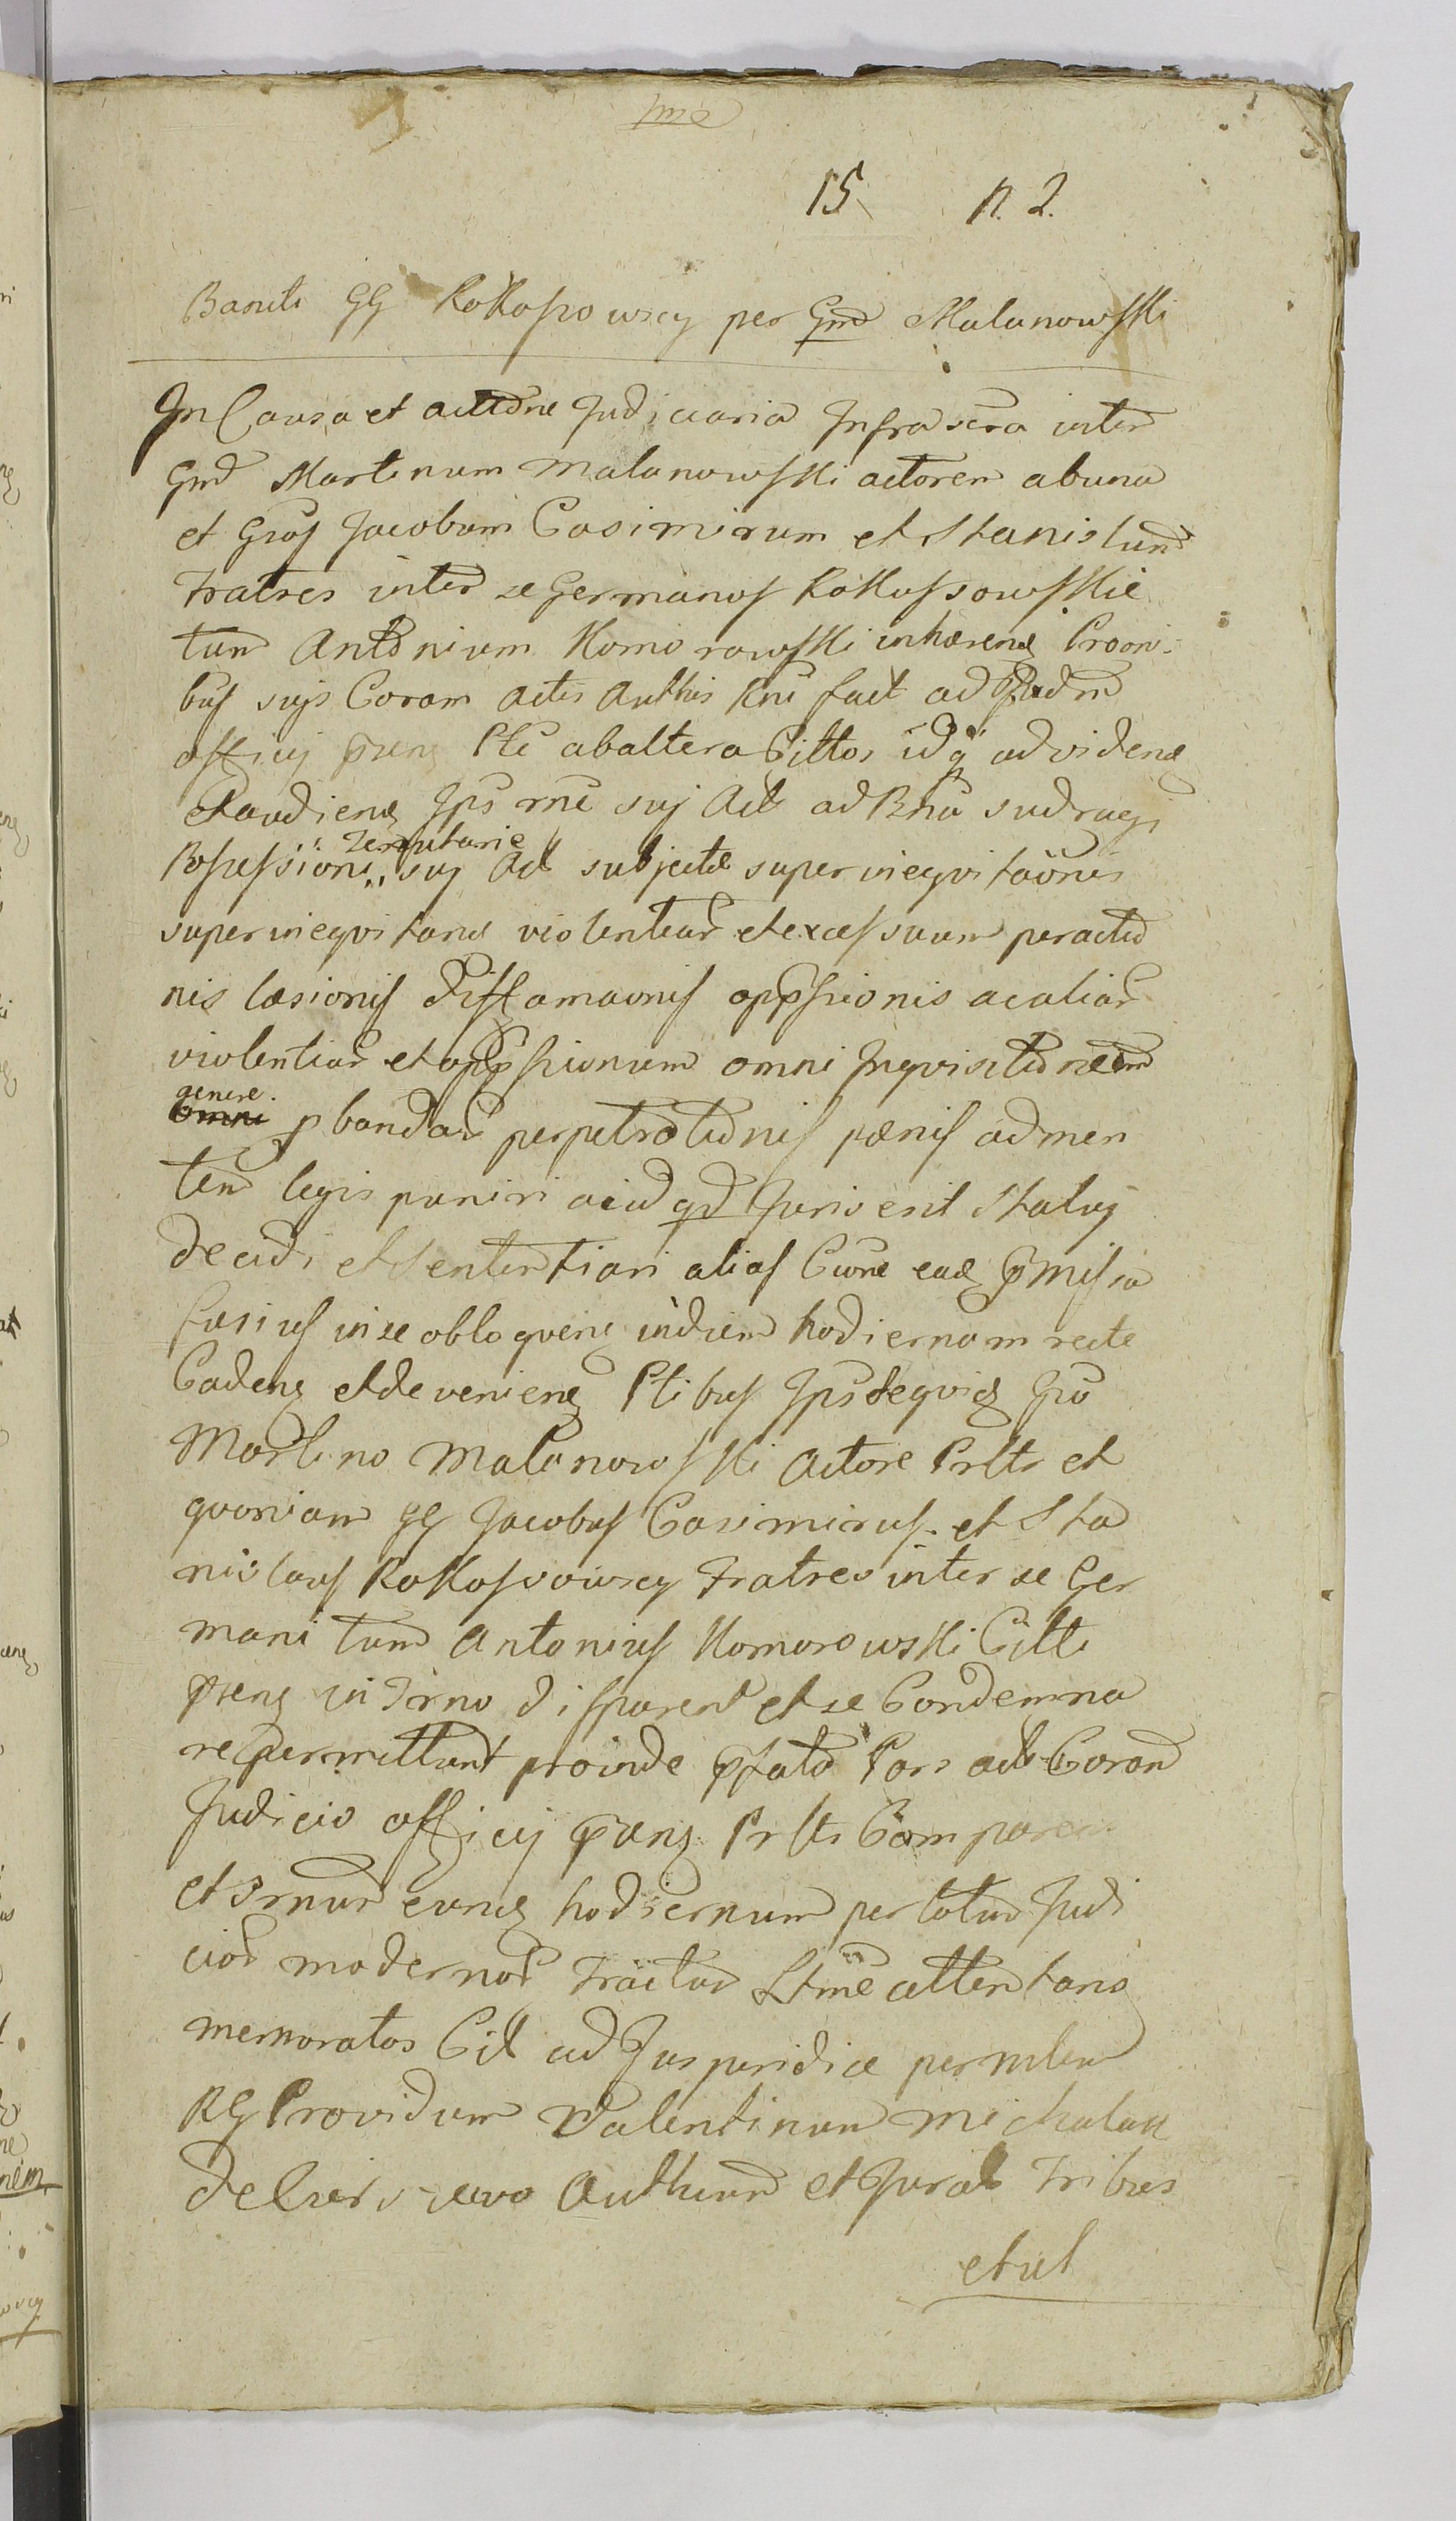 15 n. 2.
Baniti GG Rokossowscy per Gnd Malanowski
In Causa et actione Judiciaria Infra scra inter
Gnd Martinum Malanowski actorem ab una
et Gros Jacobum Casimirum et Stanislaum
Fratres inter se Germanos Kokossowskie
tum Antonium Komorowski inhaerens Proni-
bus suis Coram Actis Authis factis ad
officij prsens Pte ab altera Cittos idq ad videns
et audiens Ips suj Act ad
Possessionis Tenutarie suj Act subjectae superinequitaonis
superinequitans violentiar et excessuum peractio
nis laesionis Diffamaonis oppssionis ac aliar
violentiar et oppssionum omni Inquisitione
genere omni pbandar perpetrationis paenis ad men
tem legis puniri acid qd Juris erit Statuj
decidi et Sententiari alias Cione ead pmissa
fusius in se obloquens in diem hodiernam recte
Cadens et deveniens Ptibus Ips Gro
Martino Malanowski Actore Prlts et
quoniam GG Jacobus Casimirus et Sta
nislaus Kokossowscy Fratres inter se Ger
mani tum Antonius Komorowski Citti
prsens in Trno disparent et se Condemna
re permittunt proinde pfata Pars act Coram
Judicio officij prsens Prlts Comparens
et Trnum hodiernum per totum Judi
cior modernor Tractum Ltme attentans
memoratos Cit ad Jus juridice per mlem
RG Providum Valentinum Michalak
de Authum et Jurat Tribus
et ut